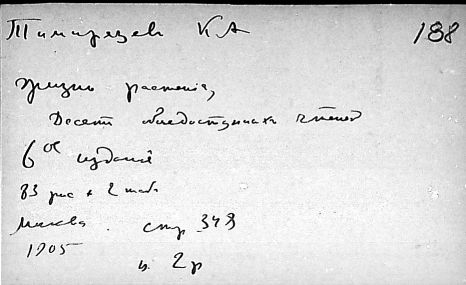 Тимирязев К А 188
Жизнь растения,
Десять общедоступных чтений
6ое издание
83 рис + 2 таб
Москва. стр 349
1905
ц. 2 р